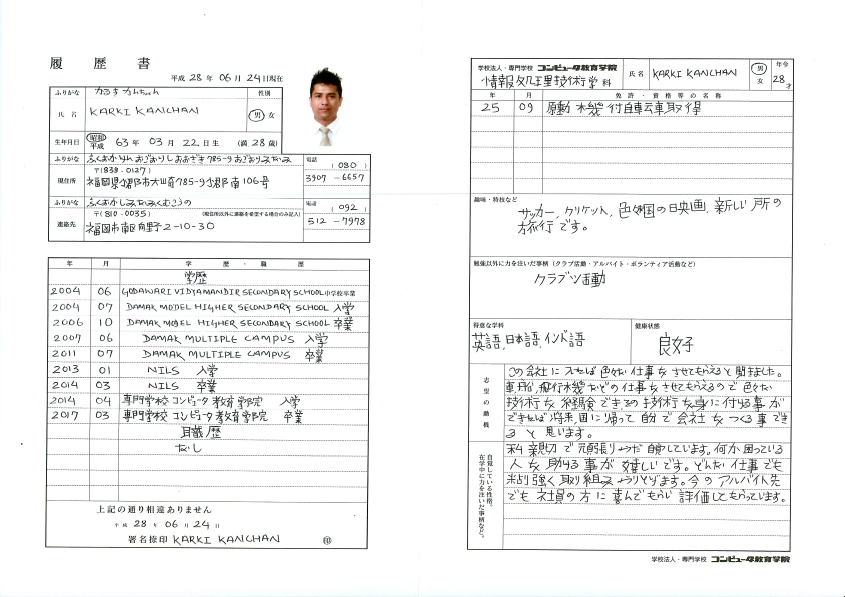 履歴書
平成 28 年 06 月 24 日現在
ふりがな かるき かんちゃん 性別
氏名 KARKI KANCHAN 男 女
生年月日 昭和 平成 63 年 03 月 22 日生 (満 28 歳)
ふりがな 電話 (080)
〒(838-0127)
現住所 福岡県小郡市大崎785-9小郡南106号 3907-6657
ふりがな 電話 (092)
〒(810-0035) (現住所以外に連絡を希望する場合のみ記入)
連絡先 福岡市南区向野2-10-30 512-7978
年 月 学歴・職歴
学歴
2004 06 GODAWARI VIDYAMANDIR SECONDARY SCHOOL中学校卒業
2004 07 DAMAK MODEL HIGHER SECONDARY SCHOOL 入学
2006 10 DAMAK MODEL HIGHER SECONDARY SCHOOL 卒業
2007 06 DAMAK MULTIPLE CAMPUS 入学
2011 07 DAMAK MULTIPLE CAMPUS 卒業
2013 01 NILS 入学
2014 03 NILS 卒業
2014 04 専門学校 コンピュータ教育学院 入学
2017 03 専門学校 コンピュータ教育学院 卒業
職歴
なし
上記の通り相違ありません
平成 28 年 06 月 24 日
署名捺印 KARKI KANCHAN 印
学校法人・専門学校 コンピュータ教育学院
情報処理技術学科
氏名 KARKI KANCHAN 男 女 年令 28才
年 月 免許・資格等の名称
25 09 原動機付自転車取得
趣味・特技など
サッカー, クリケット, 色々国の映画, 新しい所の
旅行です。
勉強以外に力を注いだ事柄(クラブ活動・アルバイト・ボランティア活動など)
クラブツ活動
得意な学科 健康状態
英語, 日本語, インド語 良好
志望の動機
この会社に入せば色々な仕事をさせてもらえると聞きました。
車, 船, 飛行機などの仕事をさせてもらえるので色々な
技術を経験できその技術を身に付る事が
できれば将来, 国に帰って自分で会社をつくる事でき
ると思います。
自覚している性格。
在学中に力を注いだ事柄など。
私親切で頑張りつだ自信しています。何か困っている
人を助ける事が嬉しいです。どんな仕事でも
粘り強く取り組みつづけます。今のアルバイト先
でも社員の方に喜んでもらい評価してもらっています。
学校法人・専門学校 コンピュータ教育学院